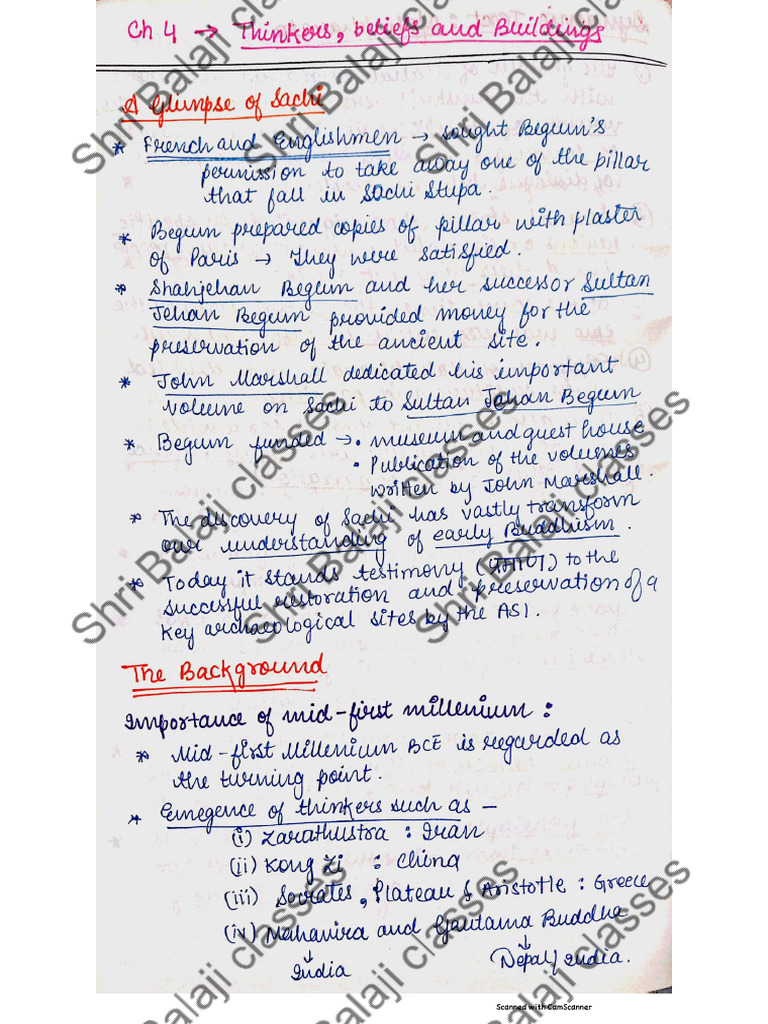 Ch 4 → Thinkers, beliefs and Buildings
A Glimpse of Sachi
* French and Englishmen → sought Begum's
permission to take away one of the pillar
that fall in Sachi Stupa.
* Begum prepared copies of pillar with plaster
of Paris → They were satisfied.
* Shahjehan Begum and her successor Sultan
Jehan Begum provided money for the
preservation of the ancient site.
* John Marshall dedicated his important
volume on Sachi to Sultan Jehan Begum
* Begum funded → • museum and guest house
• Publication of the volumes
written by John Marshall.
* The discovery of Sachi has vastly transform
our understanding of early Buddhism.
* Today it stands testimony (प्रमाण) to the
successful restoration and preservation of a
key archaeological sites by the ASI.
The Background
Importance of mid-first millenium :
* Mid-first Millenium BCE is regarded as
the turning point.
* Emegence of thinkers such as –
(i) Zarathustra : Iran
(ii) Kong Zi : China
(iii) Socrates, Plateau & Aristotle : Greece
(iv) Mahavira and Gautama Buddha
↓ ↓
India Nepal/India.
Shri Balaji classes
Scanned with CamScanner